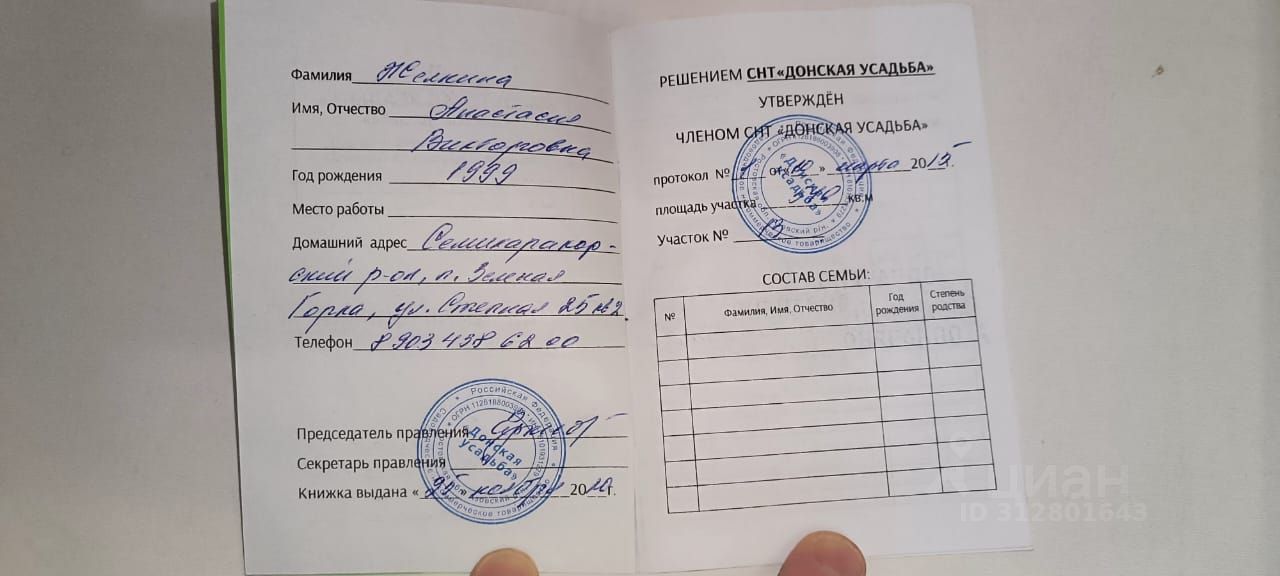 Фамилия Желнина
Имя, Отчество Анастасия
Викторовна
Год рождения 1999
Место работы
Домашний адрес Семикаракор-
ский р-он, п. Зеленая
Горка, ул. Степная 25 кв 2
Телефон 8 903 438 62 00
Председатель правления
Секретарь правления
Книжка выдана « » ноября 20 г.
Российская Федерация
«Донская
усадьба»
РЕШЕНИЕМ СНТ «ДОНСКАЯ УСАДЬБА»
УТВЕРЖДЁН
ЧЛЕНОМ СНТ «ДОНСКАЯ УСАДЬБА»
протокол № от « » марта 20 г.
площадь участка кв.м
Участок №
«Донская
усадьба»
СОСТАВ СЕМЬИ:
№ Фамилия, Имя, Отчество Год рождения Степень родства
циан
ID 312801643